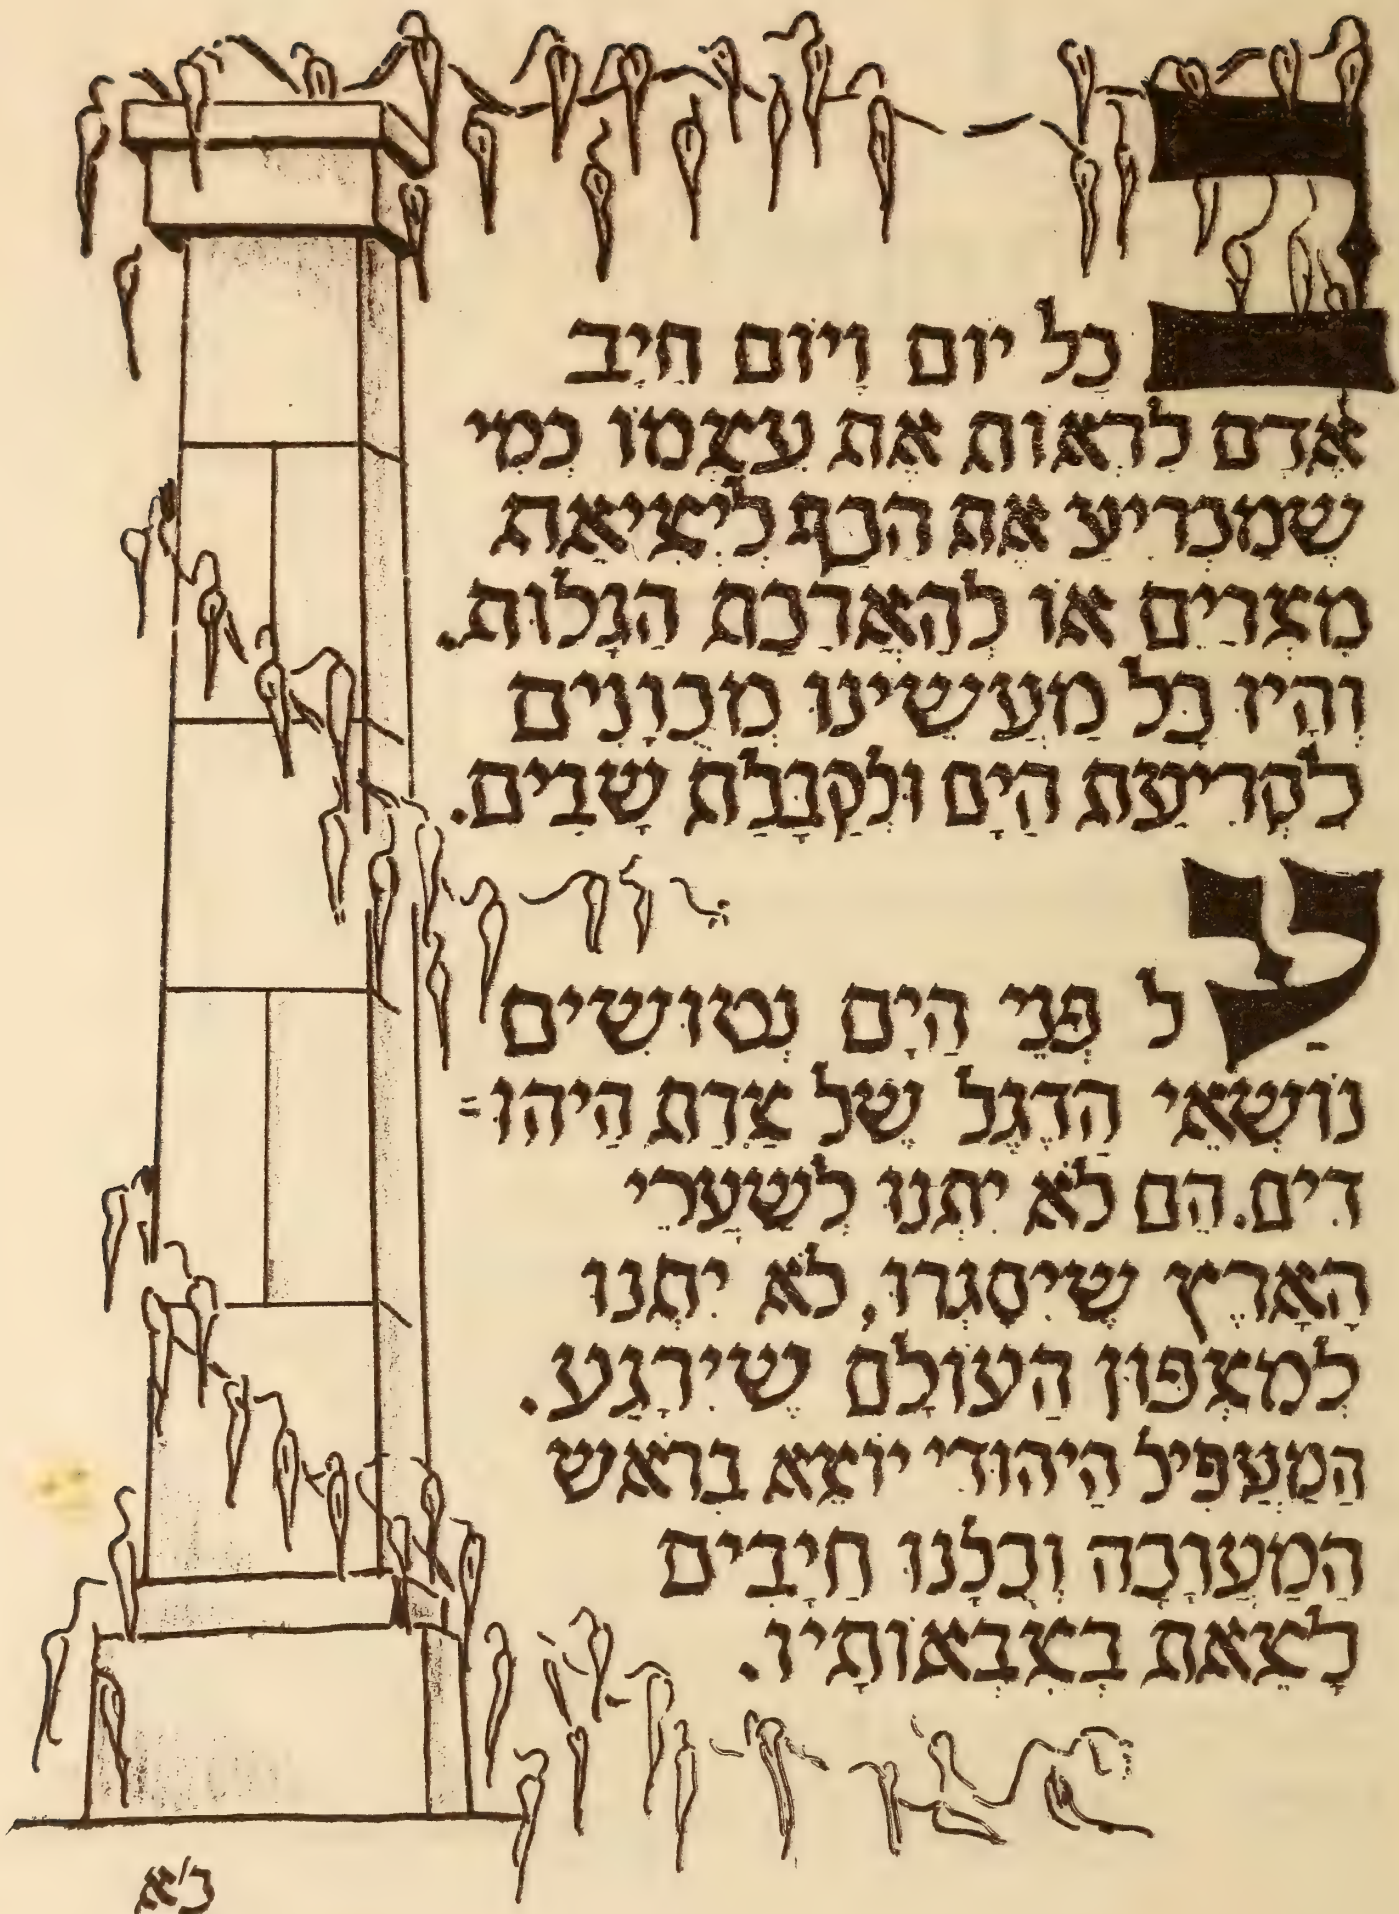 בְּכָל יוֹם וָיוֹם חַיָּב
אָדָם לִרְאוֹת אֶת עַצְמוֹ כְּמִי
שֶׁמַּכְרִיעַ אֶת הַכַּף לִיצִיאַת
מִצְרַיִם אוֹ לְהַאֲרָכַת הַגָּלוּת.
וְהָיוּ כָּל מַעֲשֵׂינוּ מְכֻוָּנִים
לִקְרִיעַת הַיָּם וּלְקַבָּלַת שָׁבִים.
עַל פְּנֵי הַיָּם נְטוּשִׁים
נוֹשְׂאֵי הַדֶּגֶל שֶׁל צָרַת הַיְהוּ=
דִים. הֵם לֹא יִתְּנוּ לְשַׁעֲרֵי
הָאָרֶץ שֶׁיִּסָּגְרוּ, לֹא יִתְּנוּ
לְמַצְפּוּן הָעוֹלָם שֶׁיֵּרָגַע.
הַמַּעְפִּיל הַיְּהוּדִי יוֹצֵא בְּרֹאשׁ
הַמַּעֲרָכָה וְכֻלָּנוּ חַיָּבִים
לָצֵאת בְּצִבְאוֹתָיו.
כ׳א